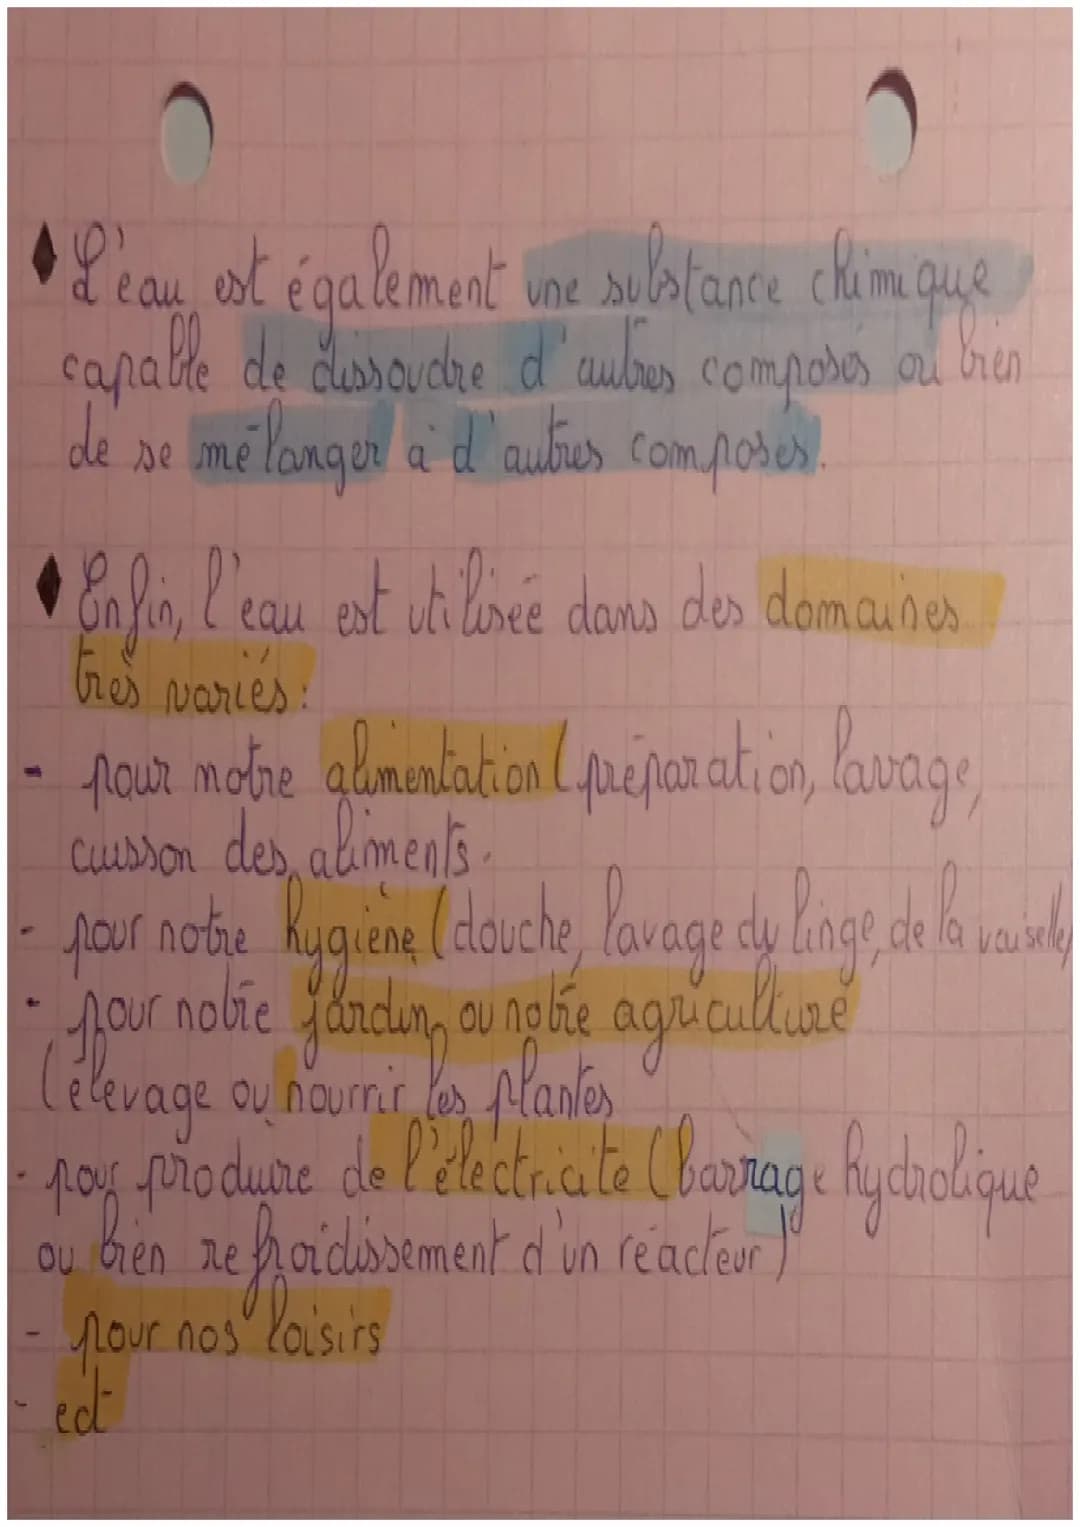 ♦ L'eau est également une substance chimique
capable de dissoudre d'autres composés ou bien
de se mélanger à d'autres composés.
♦ Enfin, l'eau est utilisée dans des domaines
très variés :
- pour notre alimentation (préparation, lavage,
cuisson des aliments.
- pour notre hygiène (douche, lavage du linge, de la vaiselle)
- pour notre jardin ou notre agriculture
(élevage ou nourrir les plantes
- pour produire de l'électricité (barrage hydrolique
ou bien refroidissement d'un réacteur)
- pour nos loisirs
- ect